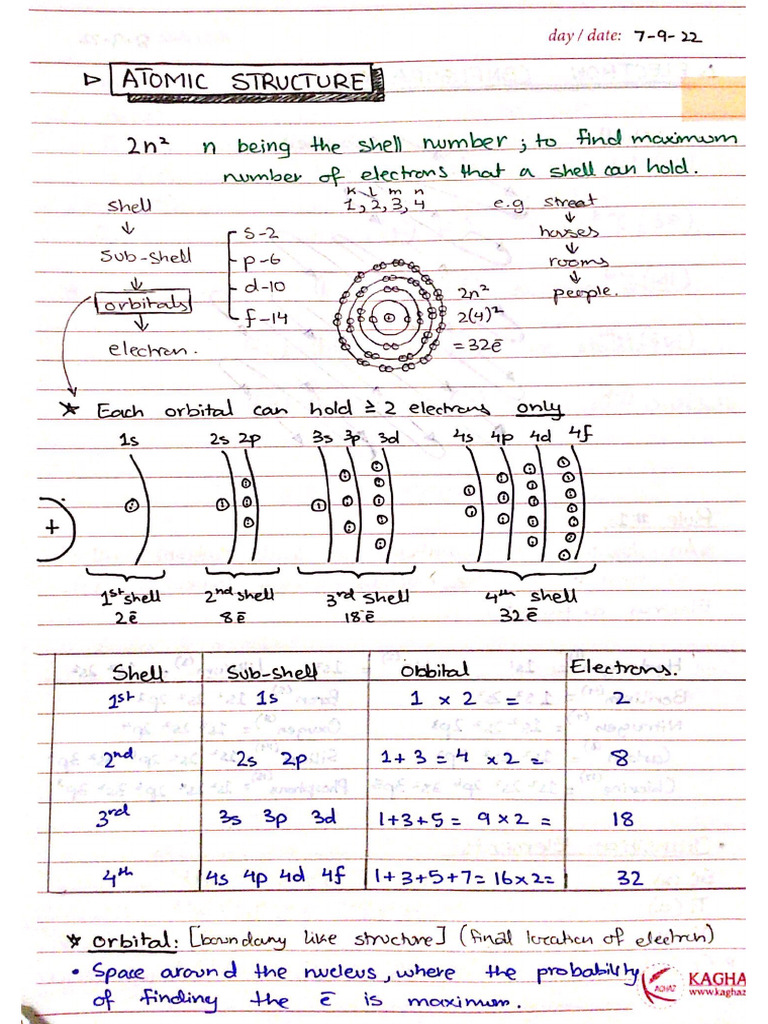 day / date: 7-9-22
▷ ATOMIC STRUCTURE
2n² n being the shell number ; to find maximum
number of electrons that a shell can hold.
K L m n
Shell 1, 2, 3, 4 e.g street
↓ ↓
Sub-shell s-2 houses
↓ p-6 ↓
orbitals d-10 rooms
↓ f-14 ↓
electron. people.
2n²
2(4)²
= 32ē
★ Each orbital can hold ≥ 2 electrons only
1s 2s 2p 3s 3p 3d 4s 4p 4d 4f
+
1st shell 2nd shell 3rd shell 4th shell
2ē 8ē 18ē 32ē
Shell Sub-shell Obbital Electrons.
1st 1s 1 × 2 = 2
2nd 2s 2p 1+3 = 4 × 2 = 8
3rd 3s 3p 3d 1+3+5 = 9 × 2 = 18
4th 4s 4p 4d 4f 1+3+5+7 = 16×2 = 32
★ orbital: [boundary like structure] (final location of electron)
• Space around the nucleus, where the probability
of finding the ē is maximum.
AGHAZ
KAGHA
www.kaghaz